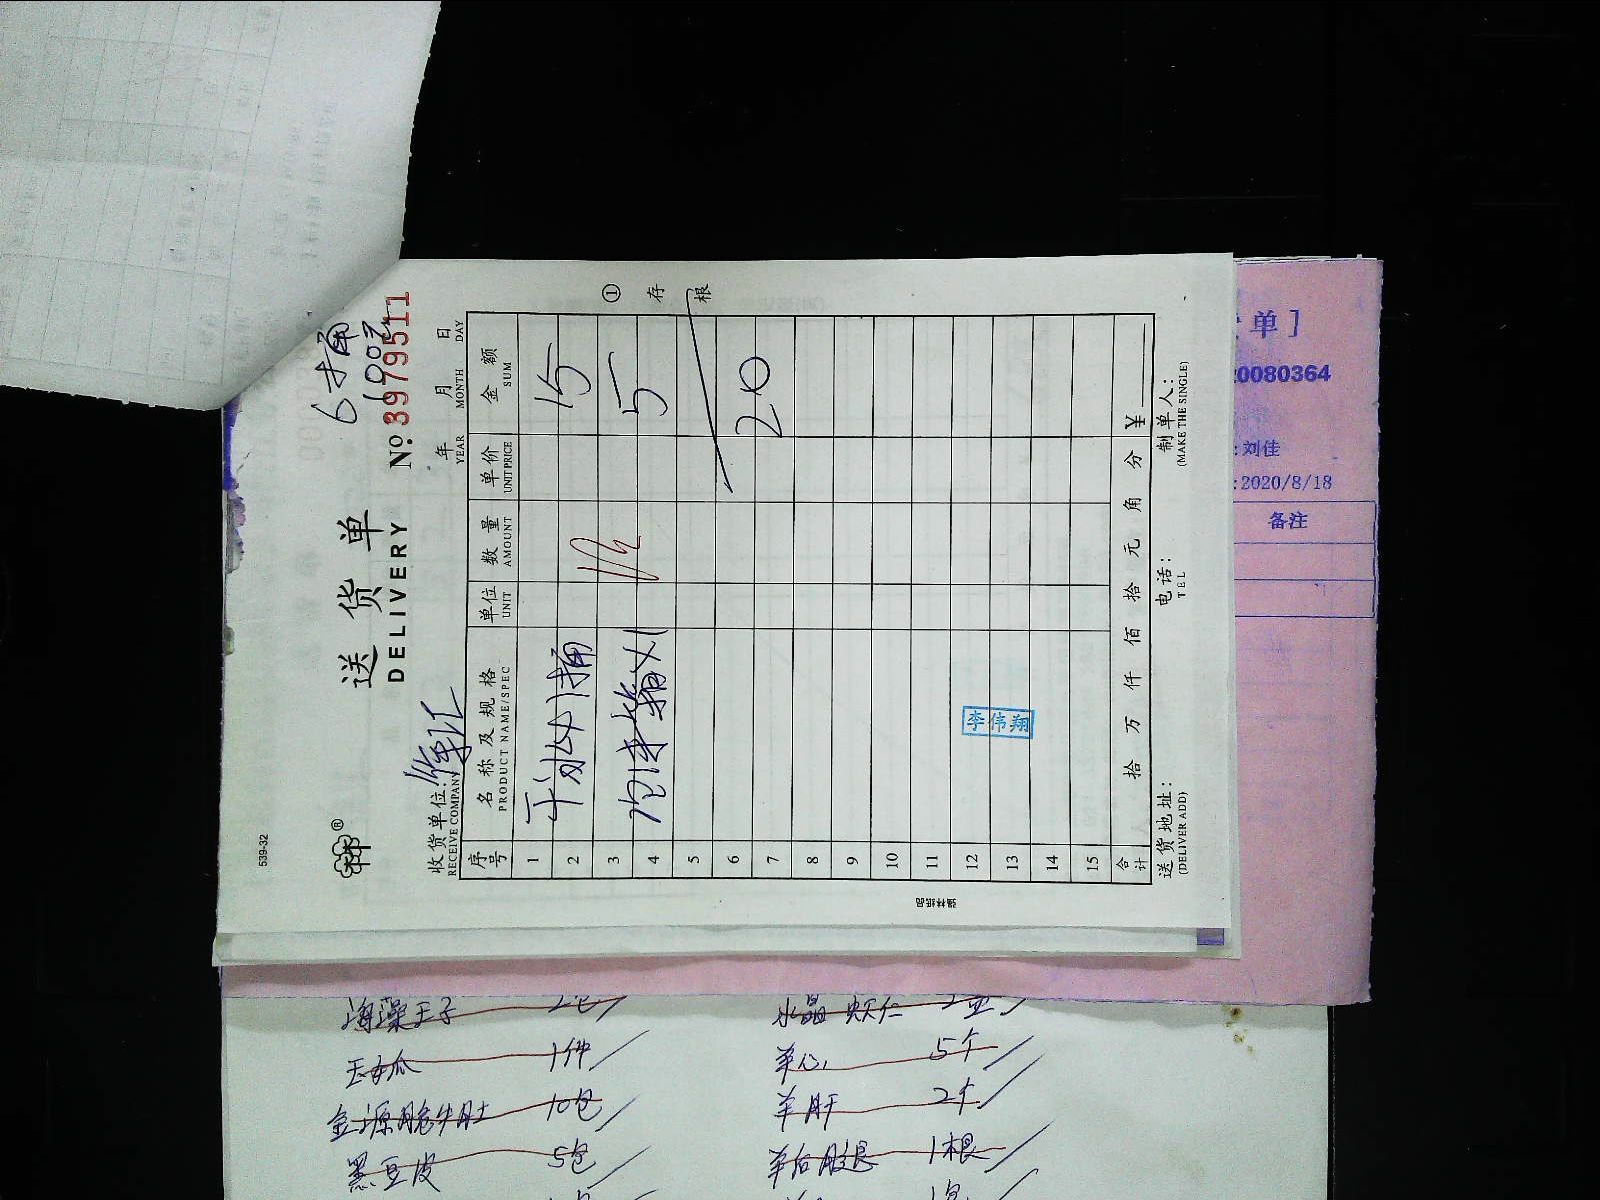 539-32
6桶
100元
送货单
DELIVERY
No 3979511
收货单位:
RECEIVE COMPANY
年 月 日
YEAR MONTH DAY
序号 名称及规格 单位 数量 单价 金额
PRODUCT NAME/SPEC UNIT AMOUNT UNIT PRICE SUM
1
2 15
3
4 5
5
6
7 20
8
9
10
11
12
13
14
15
李伟翔
合计 拾 万 仟 佰 拾 元 角 分 ¥
送货地址: 电话: 制单人:
(DELIVER ADD) TEL (MAKE THE SINGLE)
① 存根
单]
20080364
:刘佳
:2020/8/18
备注
海藻王子
水晶虾仁
玉女瓜 1件
羊心 5个
金源脆牛肚 10包
羊肝 2个
黑豆皮 5包
羊后腿 1根